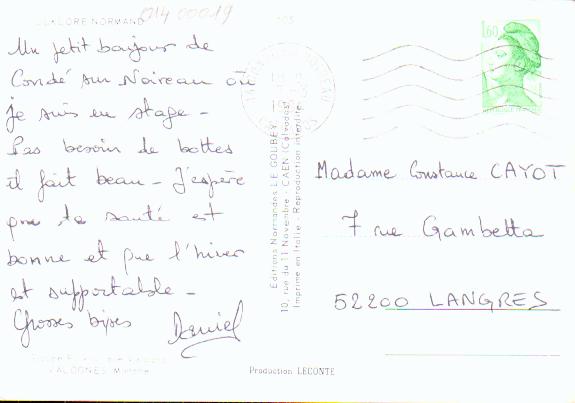 FOLKLORE NORMAND
01400019
Un petit bonjour de
Condé sur Noireau où
je suis en stage -
Pas besoin de bottes
il fait beau - J'espère
que ta santé est
bonne et que l'hiver
est supportable -
Grosses bises Daniel
VALOGNES
Editions Normandes LE GOUBEY
10, rue du 11 Novembre - CAEN (Calvados)
Imprimé en Italie - Reproduction interdite
Production LECONTE
1,60
Madame Constance CAYOT
7 rue Gambetta
52200 LANGRES